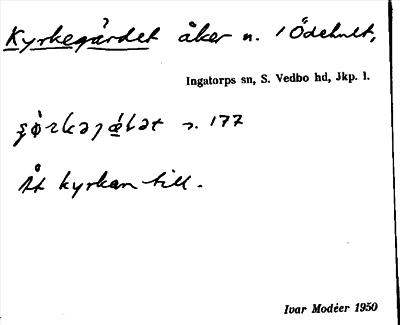 Kyrkegärdet åker n. 1 Ödehult,
Ingatorps sn, S. Vedbo hd, Jkp. l.
s. 177
Åt kyrkan till.
Ivar Modéer 1950